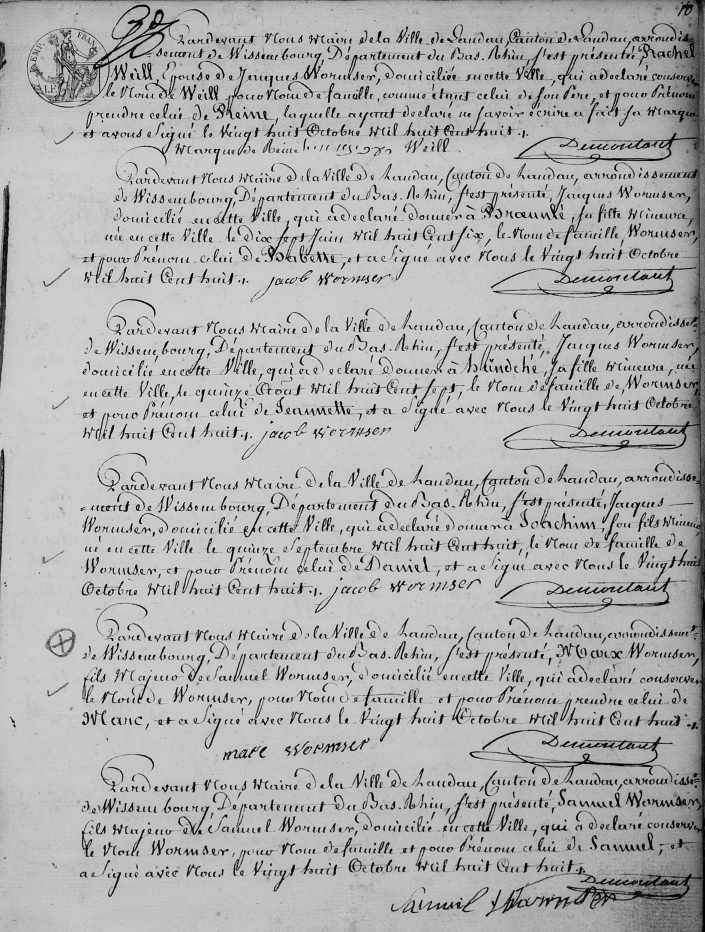 10
Pardevant Nous Maire de la Ville de Landau, Canton de Landau, arrondis-
sement de Wissembourg, Département du Bas-Rhin, s'est présentée, Rachel
Weill, Epouse de Jacques Wormser, domiciliée en cette Ville, qui a declaré conserver
le Nom de Weill pour Nom de famille, comme étant celui de son Pere, et pour Prénom
prendre celui de Reine, laquelle ayant declaré ne savoir écrire a fait sa Marque
et avons Signé le Vingt huit Octobre Mil huit Cent huit.
Marque de Reine Weill.
Demontant
Pardevant Nous Maire de la Ville de Landau, Canton de Landau, arrondissement
de Wissembourg, Département du Bas-Rhin, s'est présenté, Jacques Wormser,
domicilié en cette Ville, qui a declaré donner à Braunlé, sa fille Mineure,
née en cette Ville le dix sept Juin Mil huit Cent Six, le Nom de famille, Wormser,
et pour Prénom celui de Babette, et a Signé avec Nous le Vingt huit Octobre
Mil huit Cent huit. jacob wormser
Demontant
Pardevant Nous Maire de la Ville de Landau, Canton de Landau, arrondissemt
de Wissembourg, Département du Bas-Rhin, s'est présenté, Jacques Wormser,
domicilié en cette Ville, qui a declaré donner à sa fille Mineure, née
en cette Ville, le quinze Août Mil huit Cent Sept, le Nom de famille de Wormser,
et pour Prénom celui de Jeannette, et a Signé avec Nous le Vingt huit Octobre
Mil huit Cent huit. jacob wormser
Demontant
Pardevant Nous Maire de la Ville de Landau, Canton de Landau, arrondisse-
-ment de Wissembourg, Département du Bas-Rhin, s'est présenté, Jacques
Wormser, domicilié en cette Ville, qui a declaré donner à Joachim son fils Mineur,
né en cette Ville le quinze Septembre Mil huit Cent huit, le Nom de famille de
Wormser, et pour Prénom celui de Daniel, et a Signé avec Nous le Vingt huit
Octobre Mil huit Cent huit. jacob wormser
Demontant
Pardevant Nous Maire de la Ville de Landau, Canton de Landau, arrondissemt
de Wissembourg, Département du Bas-Rhin, s'est présenté, Marx Wormser,
fils Majeur de Samuel Wormser, domicilié en cette Ville, qui a declaré conserver
le Nom de Wormser, pour Nom de famille et pour Prénom prendre celui de
Marc, et a Signé avec Nous le Vingt huit Octobre Mil huit Cent huit.
marc wormser
Demontant
Pardevant Nous Maire de la Ville de Landau, Canton de Landau, arrondissemt
de Wissembourg, Département du Bas-Rhin, s'est présenté, Samuel Wormser,
fils Majeur de Samuel Wormser, domicilié en cette Ville, qui a declaré conserver
le Nom Wormser, pour Nom de famille et pour Prénom celui de Samuel, et
a Signé avec Nous le Vingt huit Octobre Mil huit Cent huit.
Demontant
Samuel